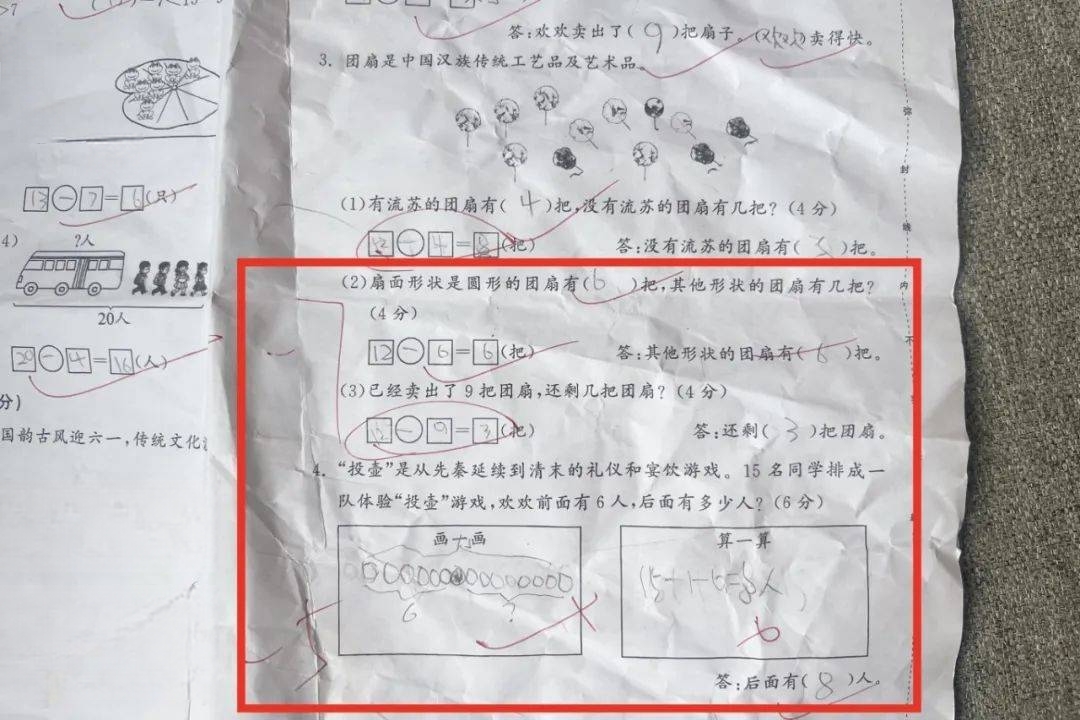 答:欢欢卖出了(9)把扇子。(欢欢)卖得快。
3. 团扇是中国汉族传统工艺品及艺术品。
(1)有流苏的团扇有(4)把,没有流苏的团扇有几把?(4分)
12-4=8(把) 答:没有流苏的团扇有( )把。
(2)扇面形状是圆形的团扇有(6)把,其他形状的团扇有几把?
(4分)
12-6=6(把) 答:其他形状的团扇有(6)把。
(3)已经卖出了9把团扇,还剩几把团扇?(4分)
-9=3(把) 答:还剩(3)把团扇。
4. “投壶”是从先秦延续到清末的礼仪和宴饮游戏。15名同学排成一
队体验“投壶”游戏,欢欢前面有6人,后面有多少人?(6分)
画一画 算一算
6 ?
答:后面有(8)人。
13-7=6(只)
4)
?人
20人
20-4=16(人)
分)
国韵古风迎六一,传统文化
弥
封
线
内
不